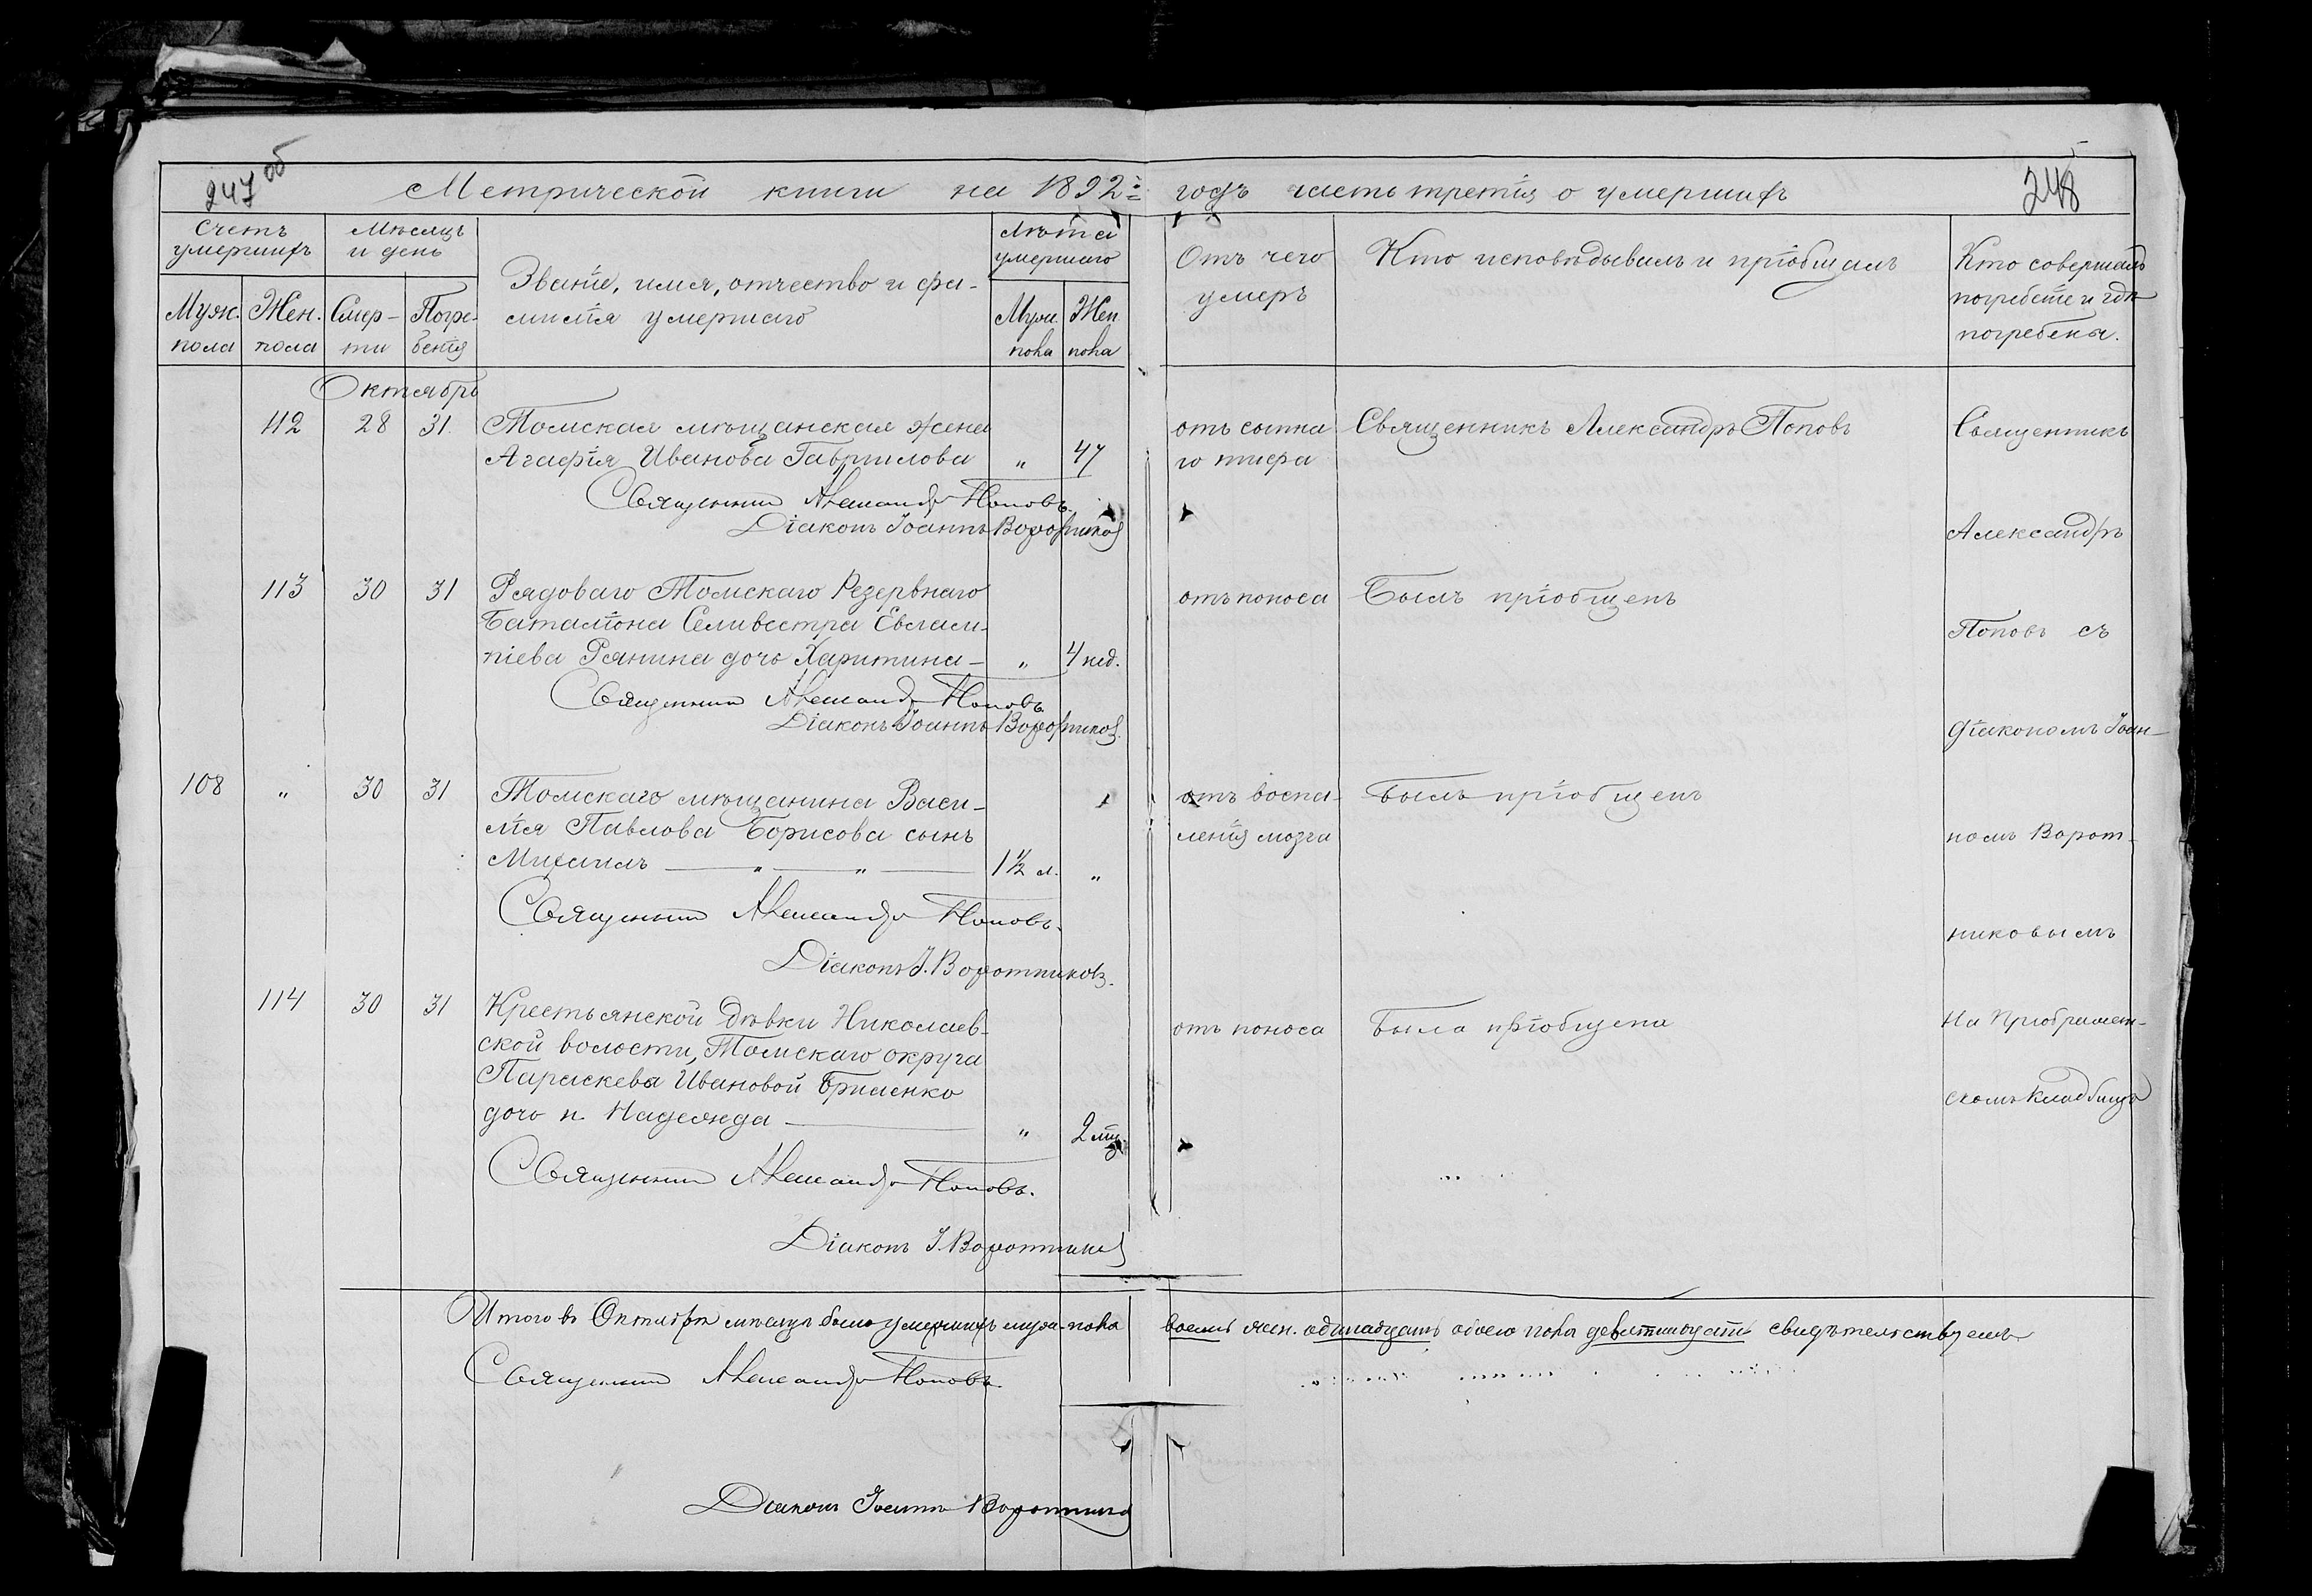 247 об
248
Метрической книги на 1892й годъ часть третія о умершихъ
Счетъ умершихъ
Муж. пола
Жен. пола
Мѣсяцъ и день
Смер-
ти
Погре-
бенія
Званіе, имя, отчество и фа-
милія умершаго
Лѣта умершаго
Муж. пола
Жен. пола
Отъ чего
умеръ
Кто исповѣдывалъ и пріобщалъ
Кто совершалъ
погребеніе и гдѣ
погребены.
Октябрь
112 28 31. Томская мѣщанская жена
Агафія Иванова Гаврилова „ 47
отъ сыпна
го тифа
Священникъ Александръ Поповъ
Священникъ Александръ Поповъ.
Діаконъ Іоаннъ Воротников
113 30 31 Рядоваго Томскаго Резервнаго
Баталіона Селивестра Евлам-
піева Рянина дочь Харитина – „ 4 нед.
отъ поноса
Былъ пріобщенъ
Священникъ Александръ Поповъ
Діаконъ Іоаннъ Воротников.
108 „ 30 31 Томскаго мѣщанина Васи-
лія Павлова Борисова сынъ
Михаилъ — „ — „ — 1½ л. „
отъ воспа-
ленія мозга
Былъ пріобщенъ
Священникъ Александръ Поповъ.
Діаконъ І. Воротниковъ.
114 30 31 Крестьянской дѣвки Николаев-
ской волости, Томскаго округа
Параскева Ивановой Бриленко
дочь н. Надежда — „ 2 мц.
отъ поноса
Была пріобщена
Священникъ Александръ Поповъ.
Діаконъ І. Воротников
Священникъ
Александръ
Поповъ съ
діакономъ Іоан-
номъ Ворот-
никовымъ
На
скомъ кладбищѣ
Итого въ Октябрѣ мѣсяцѣ было умершихъ муж. пола восемь жен. одинадцать обоего пола девятнадцать свидѣтельствуемъ
Священникъ Александръ Поповъ.
Діаконъ Іоаннъ Воротников